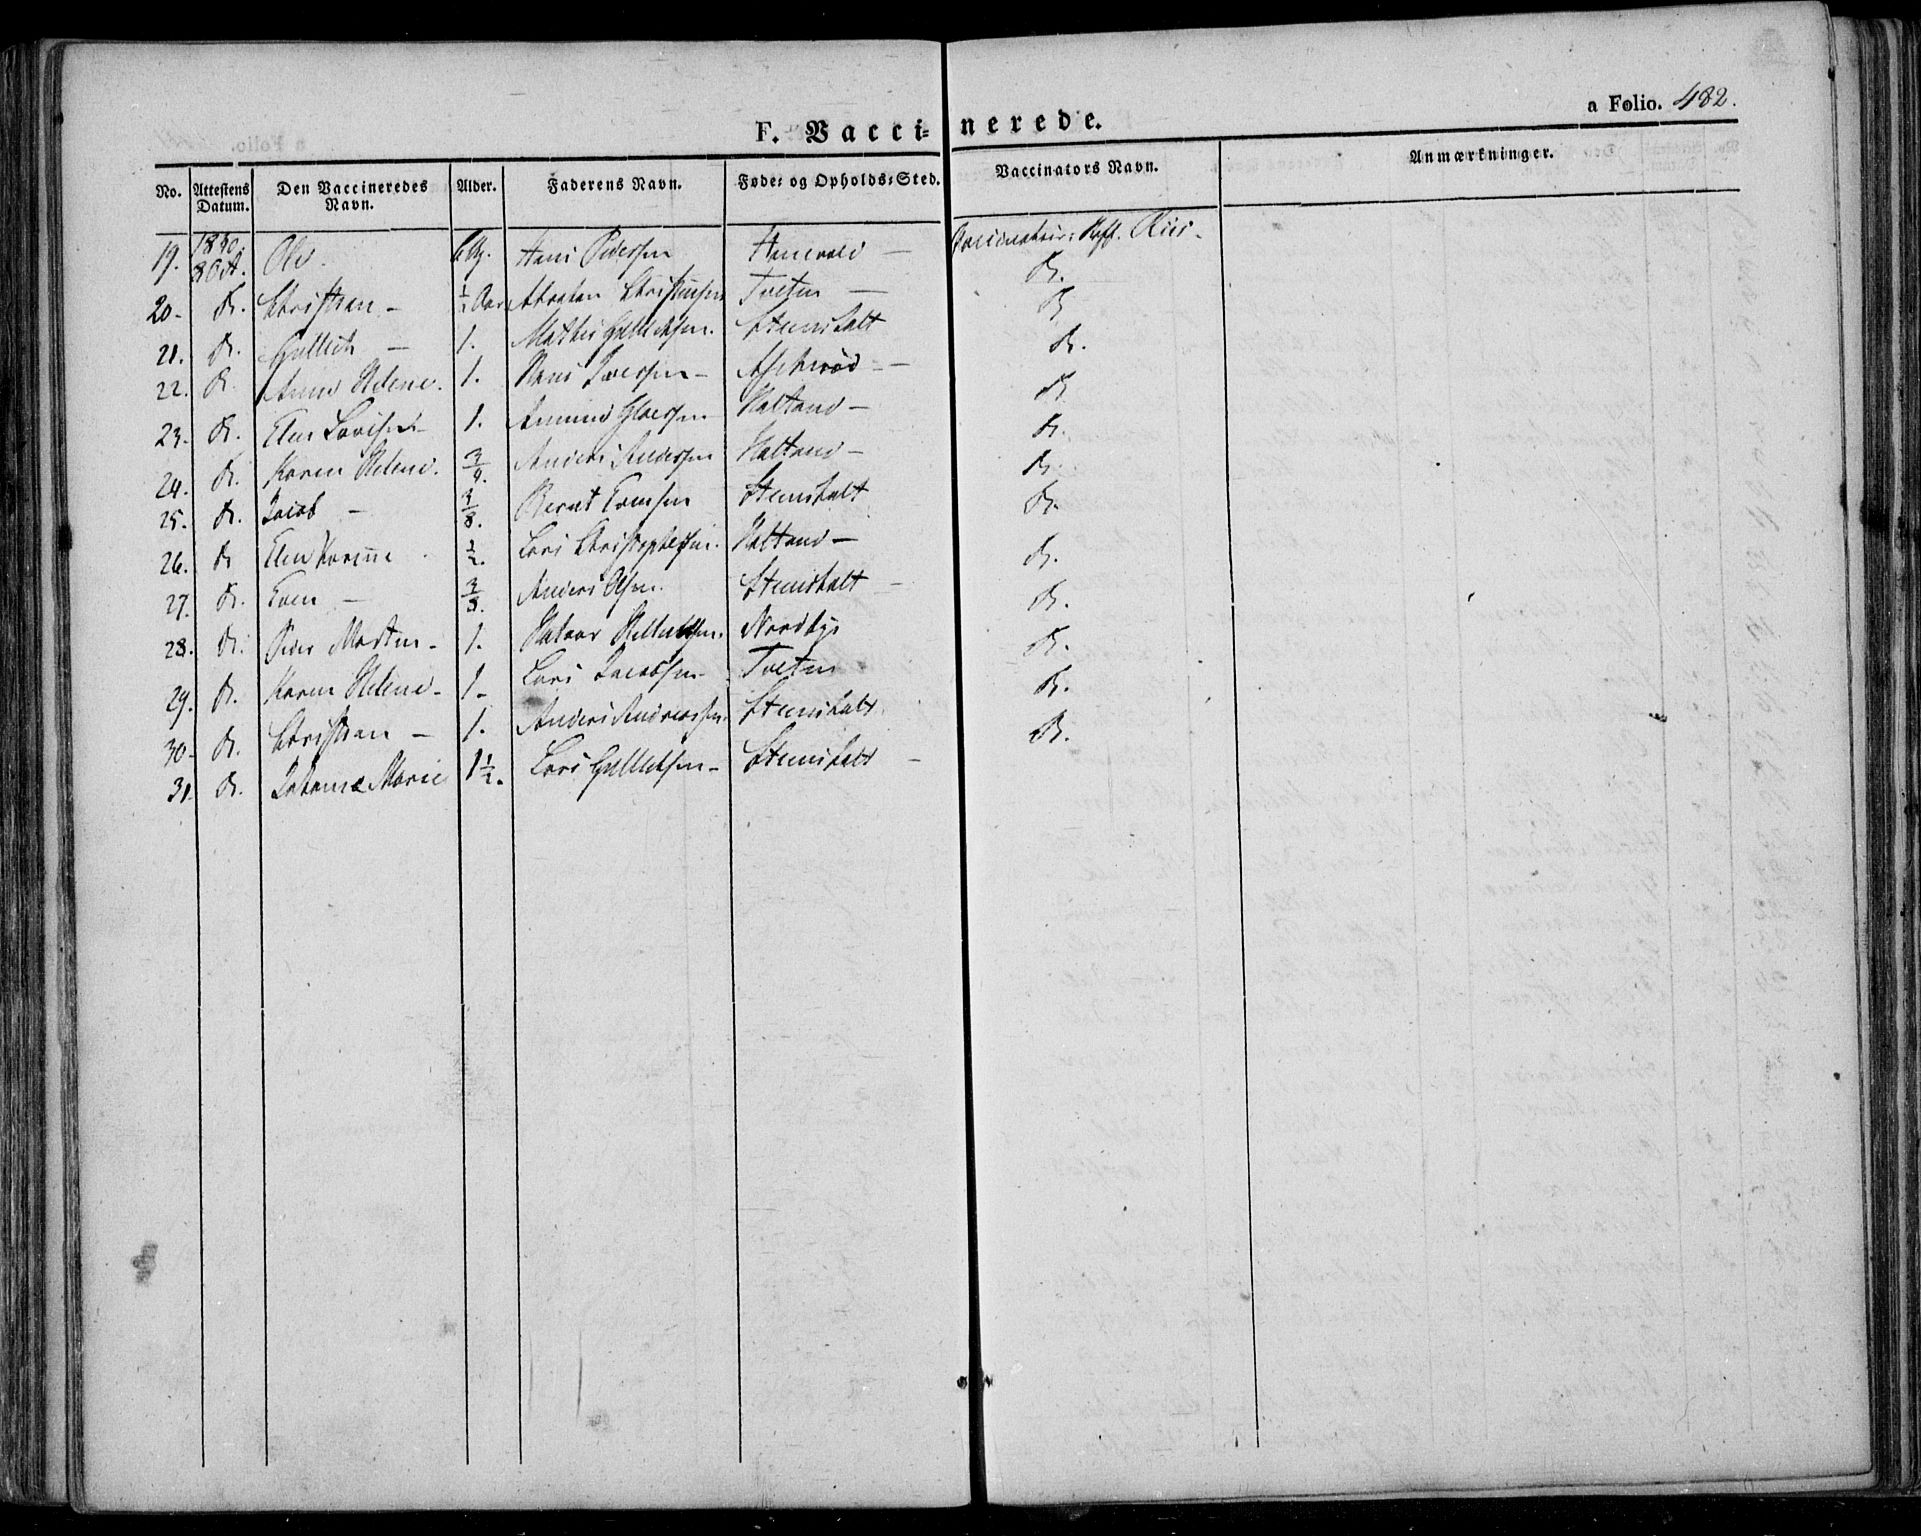 a Folio. 482.
F. Vaccinerede.
No. Attestens Datum. Den Vaccineredes Navn. Alder. Faderens Navn. Føde- og Opholds-Sted. Vaccinators Navn. Anmærkninger.
19. 1830 8 Oct. Ole. Hans Pedersen
20. D. Christian - 1/2 Aar Abraham Christensen Tveten - D.
21. D. Gullich - 1. Mathis Gullichsen. Steenshalt D
22. D. Anne Helene. 1. Hans Iversen - D.
23. D. Elen Lovise - 1. Halland - D.
24. D. Karen Helene. 3/4. Anders Andersen Halland - D.
25. D. Jacob - 3/8. Bernt Evensen Steenshalt D.
26. D. Elen Karine 1/2. Lars Christophersen. Halland - D.
27. D. Even - 3/8. Anders Olsen. Steenshalt - D.
28. D. Peder Martin - 1. Nordbye D.
29. D. Karen Helene - 1 - Lars Jacobsen - Tveten D.
30 - D. Christian - 1. Anders Andreassen. Steenshalt. D.
31. D. Johanne Marie 1 1/2. Lars Gullichsen - Steenshalt - D.